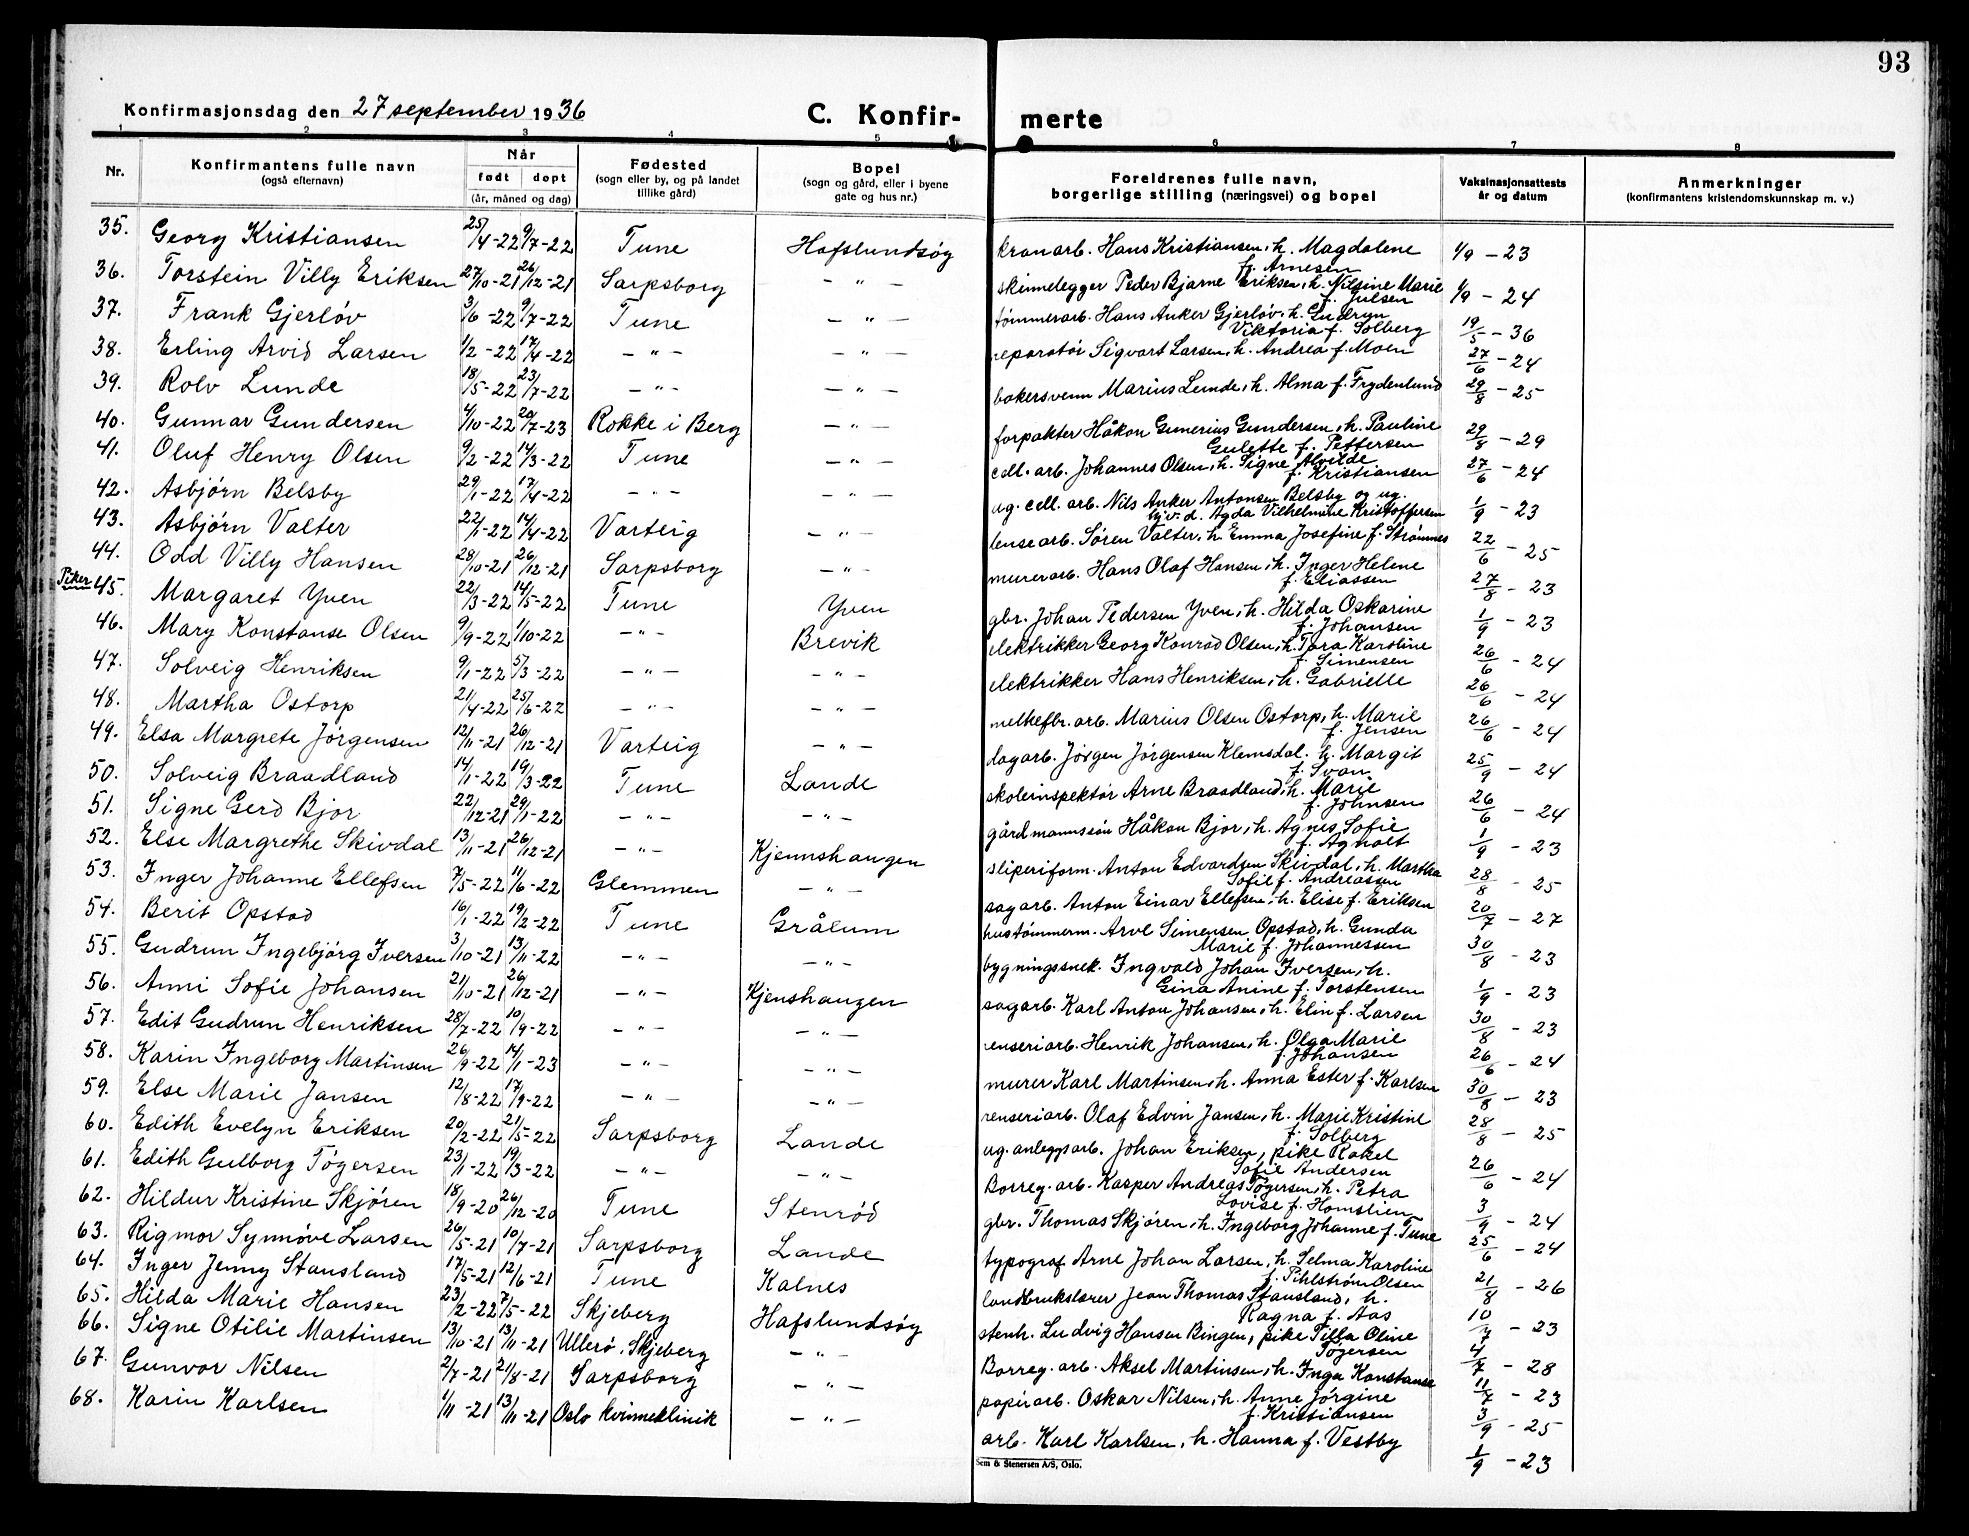 93
Konfirmasjonsdag den 27 september 1936
C. Konfir- merte
1 2 3 4 5 6 7 8
Nr.
Konfirmantens fulle navn
(også efternavn)
Når
født døpt
(år, måned og dag)
Fødested
(sogn eller by, og på landet
tillike gård)
Bopel
(sogn og gård, eller i byene
gate og hus nr.)
Foreldrenes fulle navn,
borgerlige stilling (næringsvei) og bopel
Vaksinasjonsattests
år og datum
Anmerkninger
(konfirmantens kristendomskunnskap m. v.)
35. Georg Kristiansen 25/4-22 9/7-22 Tune Hafslundsøy kranarb. Hans Kristiansen, h. Magdalene f. Arnesen 1/9 - 23
36. Torstein Villy Eriksen 27/10-21 26/12-21 Sarpsborg - " - skinnelegger Peder Bjarne Eriksen, h. Nilsine Marie f. Julsen 1/9 - 24
37. Frank Gjerløv 3/6-22 9/7-22 Tune - " - tømmerarb. Hans Anker Gjerløv, h. Gudrun Viktoria f. Solberg 19/5 - 36
38. Erling Arvid Larsen 1/2-22 17/4-22 - " - - " - reparatør Sigvart Larsen, h. Andrea f. Moen 27/6 - 24
39. Rolv Lunde 18/5-22 23/7-22 - " - - " - bakersvenn Marius Lunde, h. Alma f. Frydenlund 29/8 - 25
40. Gunnar Gundersen 4/10-22 20/7-23 Rokke i Berg - " - forpakter Håkon Gunerius Gundersen, h. Pauline Gulette f. Pettersen 29/8 - 29
41. Oluf Henry Olsen 9/2-22 14/3-22 Tune - " - cell. arb. Johannes Olsen, h. Signe Alvilde f. Kristiansen 27/6 - 24
42. Asbjørn Belsby 29/1-22 17/4-22 - " - - " - ug. cell. arb. Nils Anker Antonsen Belsby og ug. hjv. d. Agda Vilhelmine Kristoffersen 1/9 - 23
43. Asbjørn Valter 22/1-22 14/4-22 Varteig - " - lensearb. Søren Valter, h. Emma Josefine f. Strømnes 22/6 - 25
44. Odd Villy Hansen 28/10-21 26/12-21 Sarpsborg - " - murerarb. Hans Olaf Hansen, h. Inger Helene f. Eliassen 27/8 - 23
Piker
45. Margaret Yven 22/3-22 14/5-22 Tune Yven gbr. Johan Pedersen Yven, h. Hilda Oskarine f. Johansen 1/9 - 23
46. Mary Konstanse Olsen 9/9-22 1/10-22 - " - Brevik elektrikker Georg Konrad Olsen, h. Tora Karoline f. Simensen 26/6 - 24
47. Solveig Henriksen 9/1-22 5/3-22 - " - - " - elektrikker Hans Henriksen, h. Gabrielle 26/6 - 24
48. Martha Ostorp 21/4-22 25/6-22 - " - - " - melkefbr. arb. Marius Olsen Ostorp, h. Marie f. Jensen 26/6 - 24
49. Elsa Margrete Jørgensen 12/11-21 26/12-21 Varteig - " - dagarb. Jørgen Jørgensen Klemsdal, h. Margit f. Svan 25/9 - 24
50. Solveig Braadland 14/1-22 19/3-22 Tune Lande skoleinspektør Arne Braadland, h. Marie f. Johnsen 26/6 - 24
51. Signe Gerd Bjor 22/12-21 29/1-22 - " - - " - gårdmannssøn Håkon Bjor, h. Agnes Sofie f. Agholt 1/9 - 23
52. Else Margrethe Skivdal 13/11-21 26/12-21 - " - Kjennshaugen sliperiform. Anton Edvardsen Skivdal, h. Martha Sofie f. Andreassen 28/8 - 25
53. Inger Johanne Ellefsen 7/5-22 11/6-22 Glemmen - " - sagarb. Anton Einar Ellefsen, h. Elise f. Eriksen 20/7 - 27
54. Berit Opstad 16/1-22 19/2-22 Tune Grålum hustømmerm. Arve Simensen Opstad, h. Gunda Marie f. Johannessen 30/8 - 23
55. Gudrun Ingebjørg Iversen 3/10-21 13/11-22 - " - - " - bygningssnek. Ingvald Johan Iversen, h. Gina Anine f. Torstensen 1/9 - 23
56. Anni Sofie Johansen 21/10-21 26/12-21 - " - Kjenshaugen sagarb. Karl Anton Johansen, h. Elin f. Larsen 30/8 - 23
57. Edit Gudrun Henriksen 28/7-22 10/9-22 - " - - " - renseriarb. Henrik Johansen, h. Olga Marie f. Johansen 26/6 - 24
58. Karin Ingeborg Martinsen 26/9-22 14/1-23 - " - - " - murer Karl Martinsen, h. Anna Ester f. Karlsen 30/8 - 23
59. Else Marie Jansen 12/8-22 17/9-22 - " - - " - renseriarb. Olaf Edvin Jansen, h. Marie Kristine f. Solberg 28/8 - 25
60. Edith Evelyn Eriksen 20/2-22 21/5-22 Sarpsborg Lande ug. anleggsarb. Johan Eriksen, pike Rakel Sofie Andersen 26/6 - 24
61. Edith Gulborg Tøgersen 23/1-22 19/3-22 - " - - " - Borreg. arb. Kasper Andreas Tøgersen, h. Petra Lovise f. Homslien 3/9 - 24
62. Hildur Kristine Skjøren 18/9-20 26/12-20 Tune Stenrød gbr. Thomas Skjøren, h. Ingeborg Johanne f. Tune 25/6 - 24
63. Rigmor Synnøve Larsen 26/5-21 10/7-21 Sarpsborg Lande typograf Arne Johan Larsen, h. Selma Karoline f. Pihlstrøm Olsen 21/8 - 26
64. Inger Jenny Stausland 17/5-21 12/6-21 Tune Kalnes landbrukslærer Jean Thomas Stausland, h. Ragna f. Aas 10/7 - 23
65. Hilda Marie Hansen 23/2-22 7/5-22 Skjeberg Hafslundsøy stenh. Ludvig Hansen Bingen, pike Tilla Oline Tøgersen 4/7 - 28
66. Signe Otilie Martinsen 13/10-21 13/11-21 Ullerø, Skjeberg - " - Borreg. arb. Aksel Martinsen, h. Inga Konstanse 11/7 - 23
67. Gunvor Nilsen 2/7-21 21/8-21 Sarpsborg - " - papirarb. Oskar Nilsen, h. Anne Jørgine f. Kristiansen 3/9 - 25
68. Karin Karlsen 1/11-21 13/11-21 Oslo kvinneklinik - " - arb. Karl Karlsen, h. Hanna f. Vestby 1/9 - 23
Sem & Stenersen A/S, Oslo.